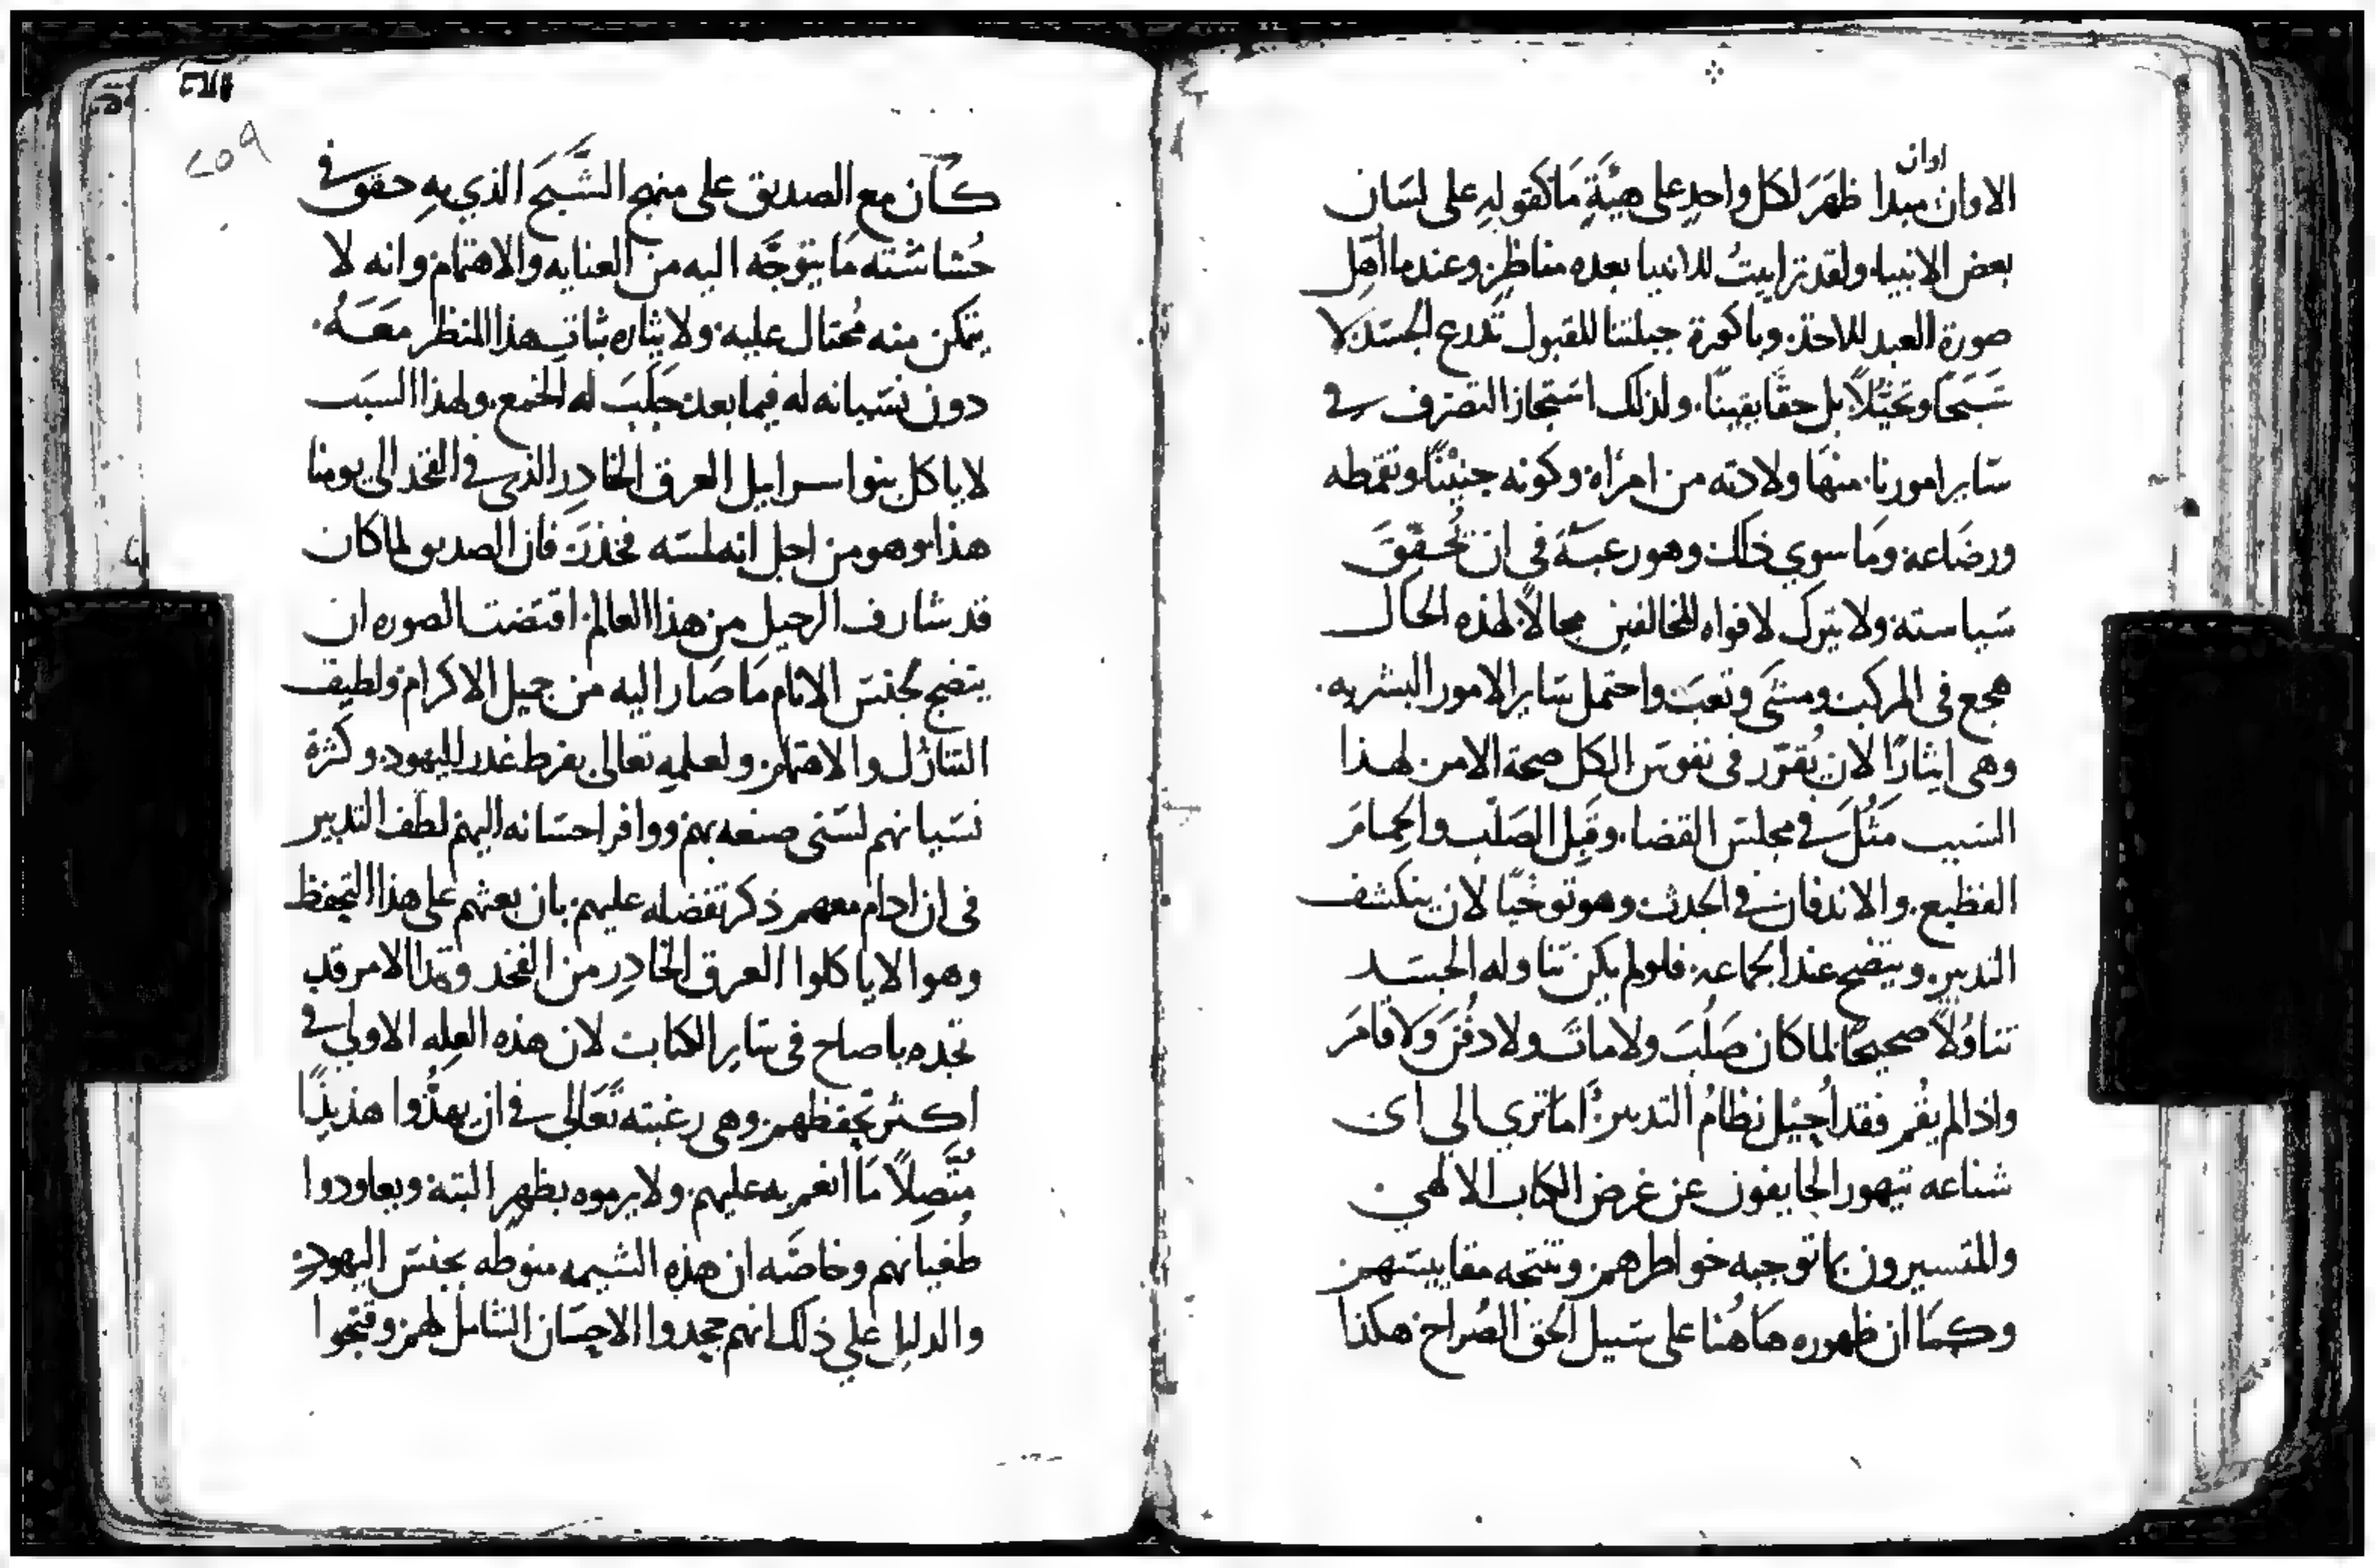 اوان
الاوان مبدا ظهَرَ لكل واحدٍ على هيئَةٍ مَا كقولهِ على لسَان
بعض الانبياء ولقد تراييتُ للانبيا بعده مناظرٍ وعندما اَهل
صورة العبد للاخذ وباكورة جبلتنا للقبول تَدرع الجسَد لا
شَبَحًا وتخيُّلًا بل حقًا يقينًا، ولذلك استجاز التصرف في
سَاير امورنا، منهَا ولادته من امرأة، وكونه جنينًا وتقمّطه
ورضَاعه ومَا سوي ذلك وهو رغبةً في ان تُحقّقَ
سَياسته، ولا يترك لافواه المخالفين مجالًا، لهذه الحال
هجع في المركب، ومشَى وتعبَ، واحتمل سَاير الامور البشريه.
وهى ايثارًا لان يُقرّر في نفوسَ الكل صحة الامر، لهذا
السَبب مَثُلَ في مجلسَ القضا، وقبِل الصَلب والحِمامَ
الفظيع، والاندفان في الجدث، وهو توخيًّا لان ينكشف
التدبير، ويتضح عند الجماعة، فلو لم يكن تناوله الجسَد
تناوُلًا صحيحًا لما كان صَلُبَ ولا ماتَ ولا دفُنَ وَلا قامَ
واذا لم يقُم فقد أُحيل نظامُ التدبير، اما تري الي اى
شناعه تيهور الحايفون عن غرض الكتاب الالاهي
والمتسيرون بما توجبه خواطرهم، وتنتجه مقاييسَهم
وكمَا ان ظهوره هَاهُنا على سَبيل الحق الصُراح، هكذا
٢٥٩
كان مع الصديق على منهج الشَّبحَ الذي بهِ حقق في
حُشاشَته مَا يتوجَّه اليه من العنايه والاهتمام، وانه لا
يتمكن منه مُحتال عليه، ولايثاره ثبات هذا المنظر مَعَهُ
دون نسَيانه له فيما بعد، جَلَبَ له الخمع، ولهذا السَبَب
لا ياكل بنوا اسراييل العرق الخادِر الذي في الفخد الى يومنا
هذا، وهو من اجل انه لمسَه فخدَرَ، فان الصديق لما كان
قد شارف الرحيل من هذا العالم، اقتضَت الصوره ان
يتضح لجنسَ الانام مَا صَار اليه من جميل الاكرام ولطيف
التنازُل والاهتمام، ولعلمهِ تعالى بفرط غدر اليهود، وكثرة
نسَيانهم لسَنى صنعه بهم، ووافر احسَانه اليهم، لطف التدبير
في ان ادام معهم ذكر تفضله عليهم، بان بعثهم على هذا التحفظ
وهو الا ياكلوا العرق الخادِر من الفخد، وهذا الامر قد
تجده ياصاح في سَاير الكتاب، لان هذه العله الاولي في
اكثر تحفظهم، وهى رغبته تَعَالي في ان يهذُّوا هذيذًا
متَّصِلًا مَا انعم به عليهم، ولا يرموه بظهرٍ البتة، ويعاودوا
طُغيانهم، وخاصّه ان هذه الشيمه منوطه بجنسَ اليهود
والدليل علي ذلك انهم جحدوا الاحسَان الشامل لهم، وقبَّحوا